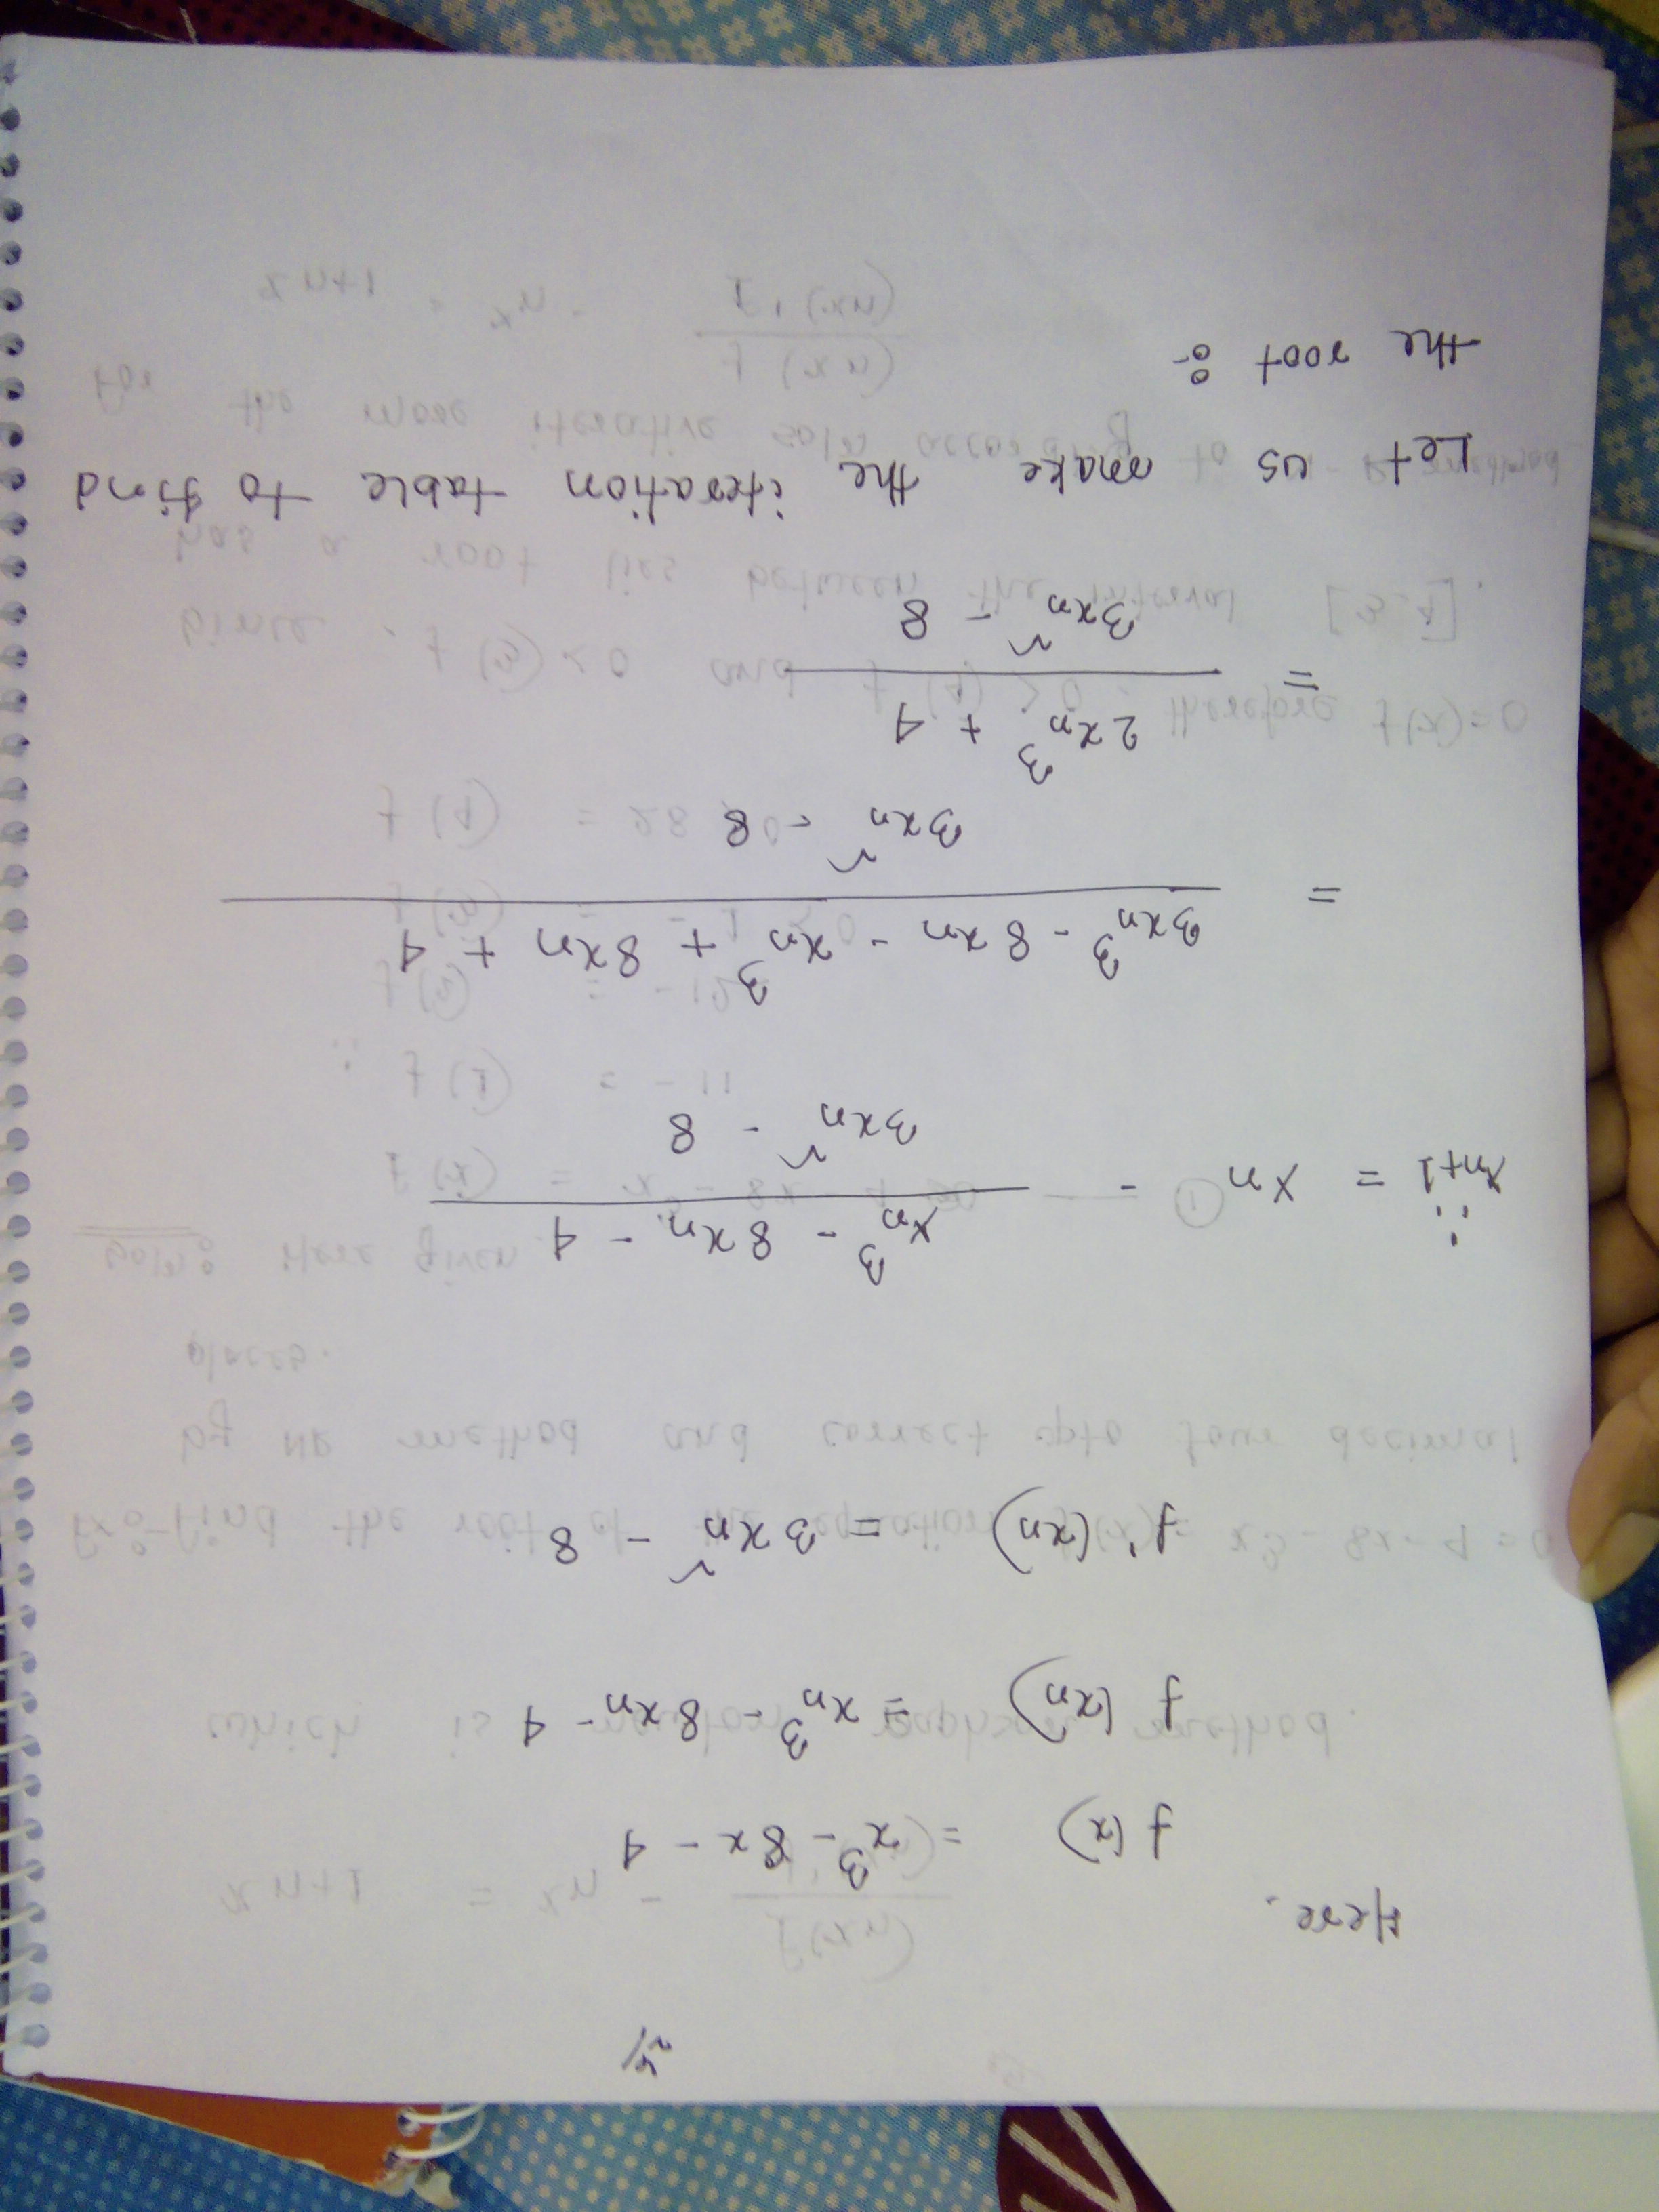 Here,
f(x) = x³ - 8x - 4
f(xn) = xn³ - 8xn - 4
f'(xn) = 3xn² - 8
∴ xn+1 = xn - (xn³ - 8xn - 4) / (3xn² - 8)
= (3xn³ - 8xn - xn³ + 8xn + 4) / (3xn² - 8)
= (2xn³ + 4) / (3xn² - 8)
Let us make the iteration table to find
the root :-